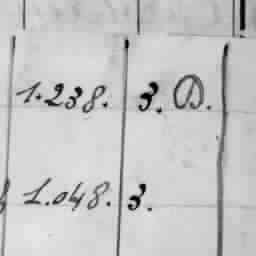 1.238. 3. D.
1.048. 3.